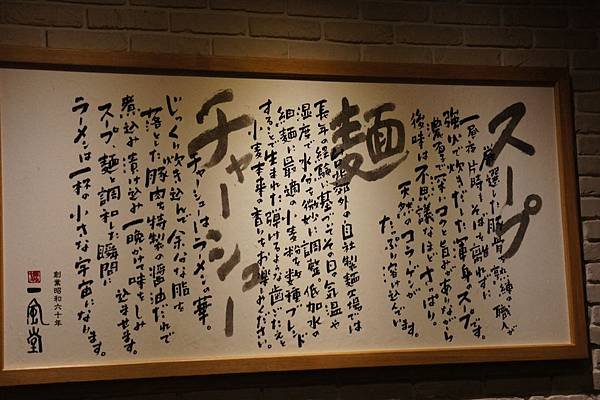 スープ
厳選した豚骨を熟練の職人が
一昼夜、片時もそばを離れずに
強火で炊きだした渾身のスープです。
濃厚で深いコクと旨みがありながら
後味は不思議なほどさっぱり。
天然のコラーゲンが
たっぷり溶け込んでいます。
麺
郊外の自社製麺工場では
長年の経験に基づいてその日の気温や
湿度で水分を微妙に調整。低加水の
細麺に最適の小麦粉を数種ブレンド
することで生まれた弾けるような歯ごたえと
小麦本来の香りをお楽しみください。
チャーシュー
チャーシューはラーメンの華。
じっくり炊き込んで余分な脂を
落とした豚肉を特製の醤油だれで
煮込み漬け込み一晩かけて味をしみ
込ませます。
スープ、麺、調和した瞬間に
ラーメンは一杯の小さな宇宙になります。
創業昭和六十年
一風堂